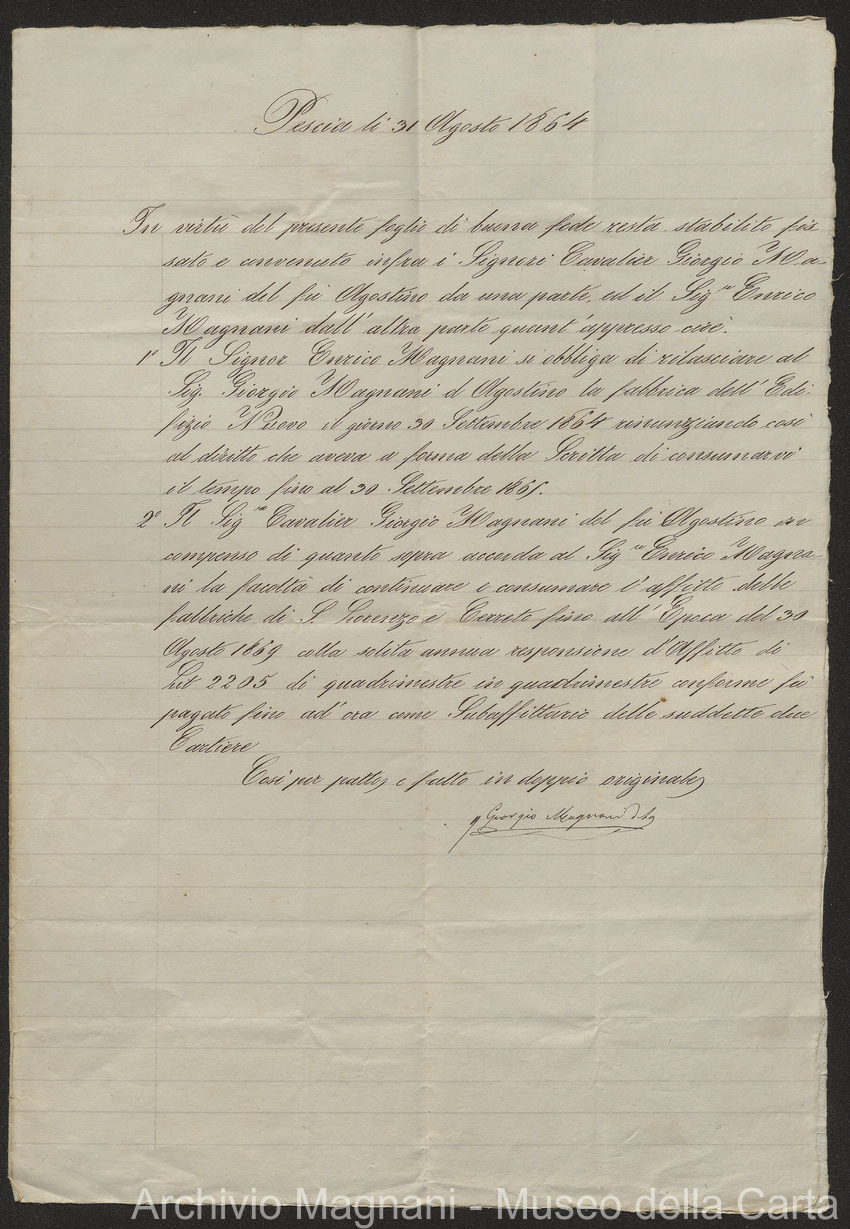 Pescia li 31 Agosto 1864
In virtù del presente foglio di buona fede resta stabilito fis
sato e convenuto infra i Signori Cavalier Giorgio Ma-
gnani del fu Agostino da una parte, ed il Sigre Enrico
Magnani dall' altra parte quant' appresso cioè.
1º Il Signor Enrico Magnani si obbliga di rilasciare al
Sig. Giorgio Magnani d Agostino la fabbrica dell' Edi-
fizio Nuovo il giorno 30 Settembre 1864 rinunziando così
al diritto che aveva a forma della Scritta di consumarvi
il tempo fino al 30 Settembre 1865.
2º Il Sigre Cavalier Giorgio Magnani del fu Agostino in
compenso di quanto sopra accorda al Sigre Enrico Magna-
ni la facoltà di continuare e consumare l'affitto delle
fabbriche di S. Lorenzo e Cerreto fino all' Epoca del 30
Agosto 1869 colla solita annua responsione d'Affitto di
2205 di quadrimestre in quadrimestre conforme fu
pagato fino ad' ora come Subaffittario delle suddette due
Cartiere
Così per patto, e fatto in doppio originale,
Giorgio Magnani d'Ag
Archivio Magnani - Museo della Carta